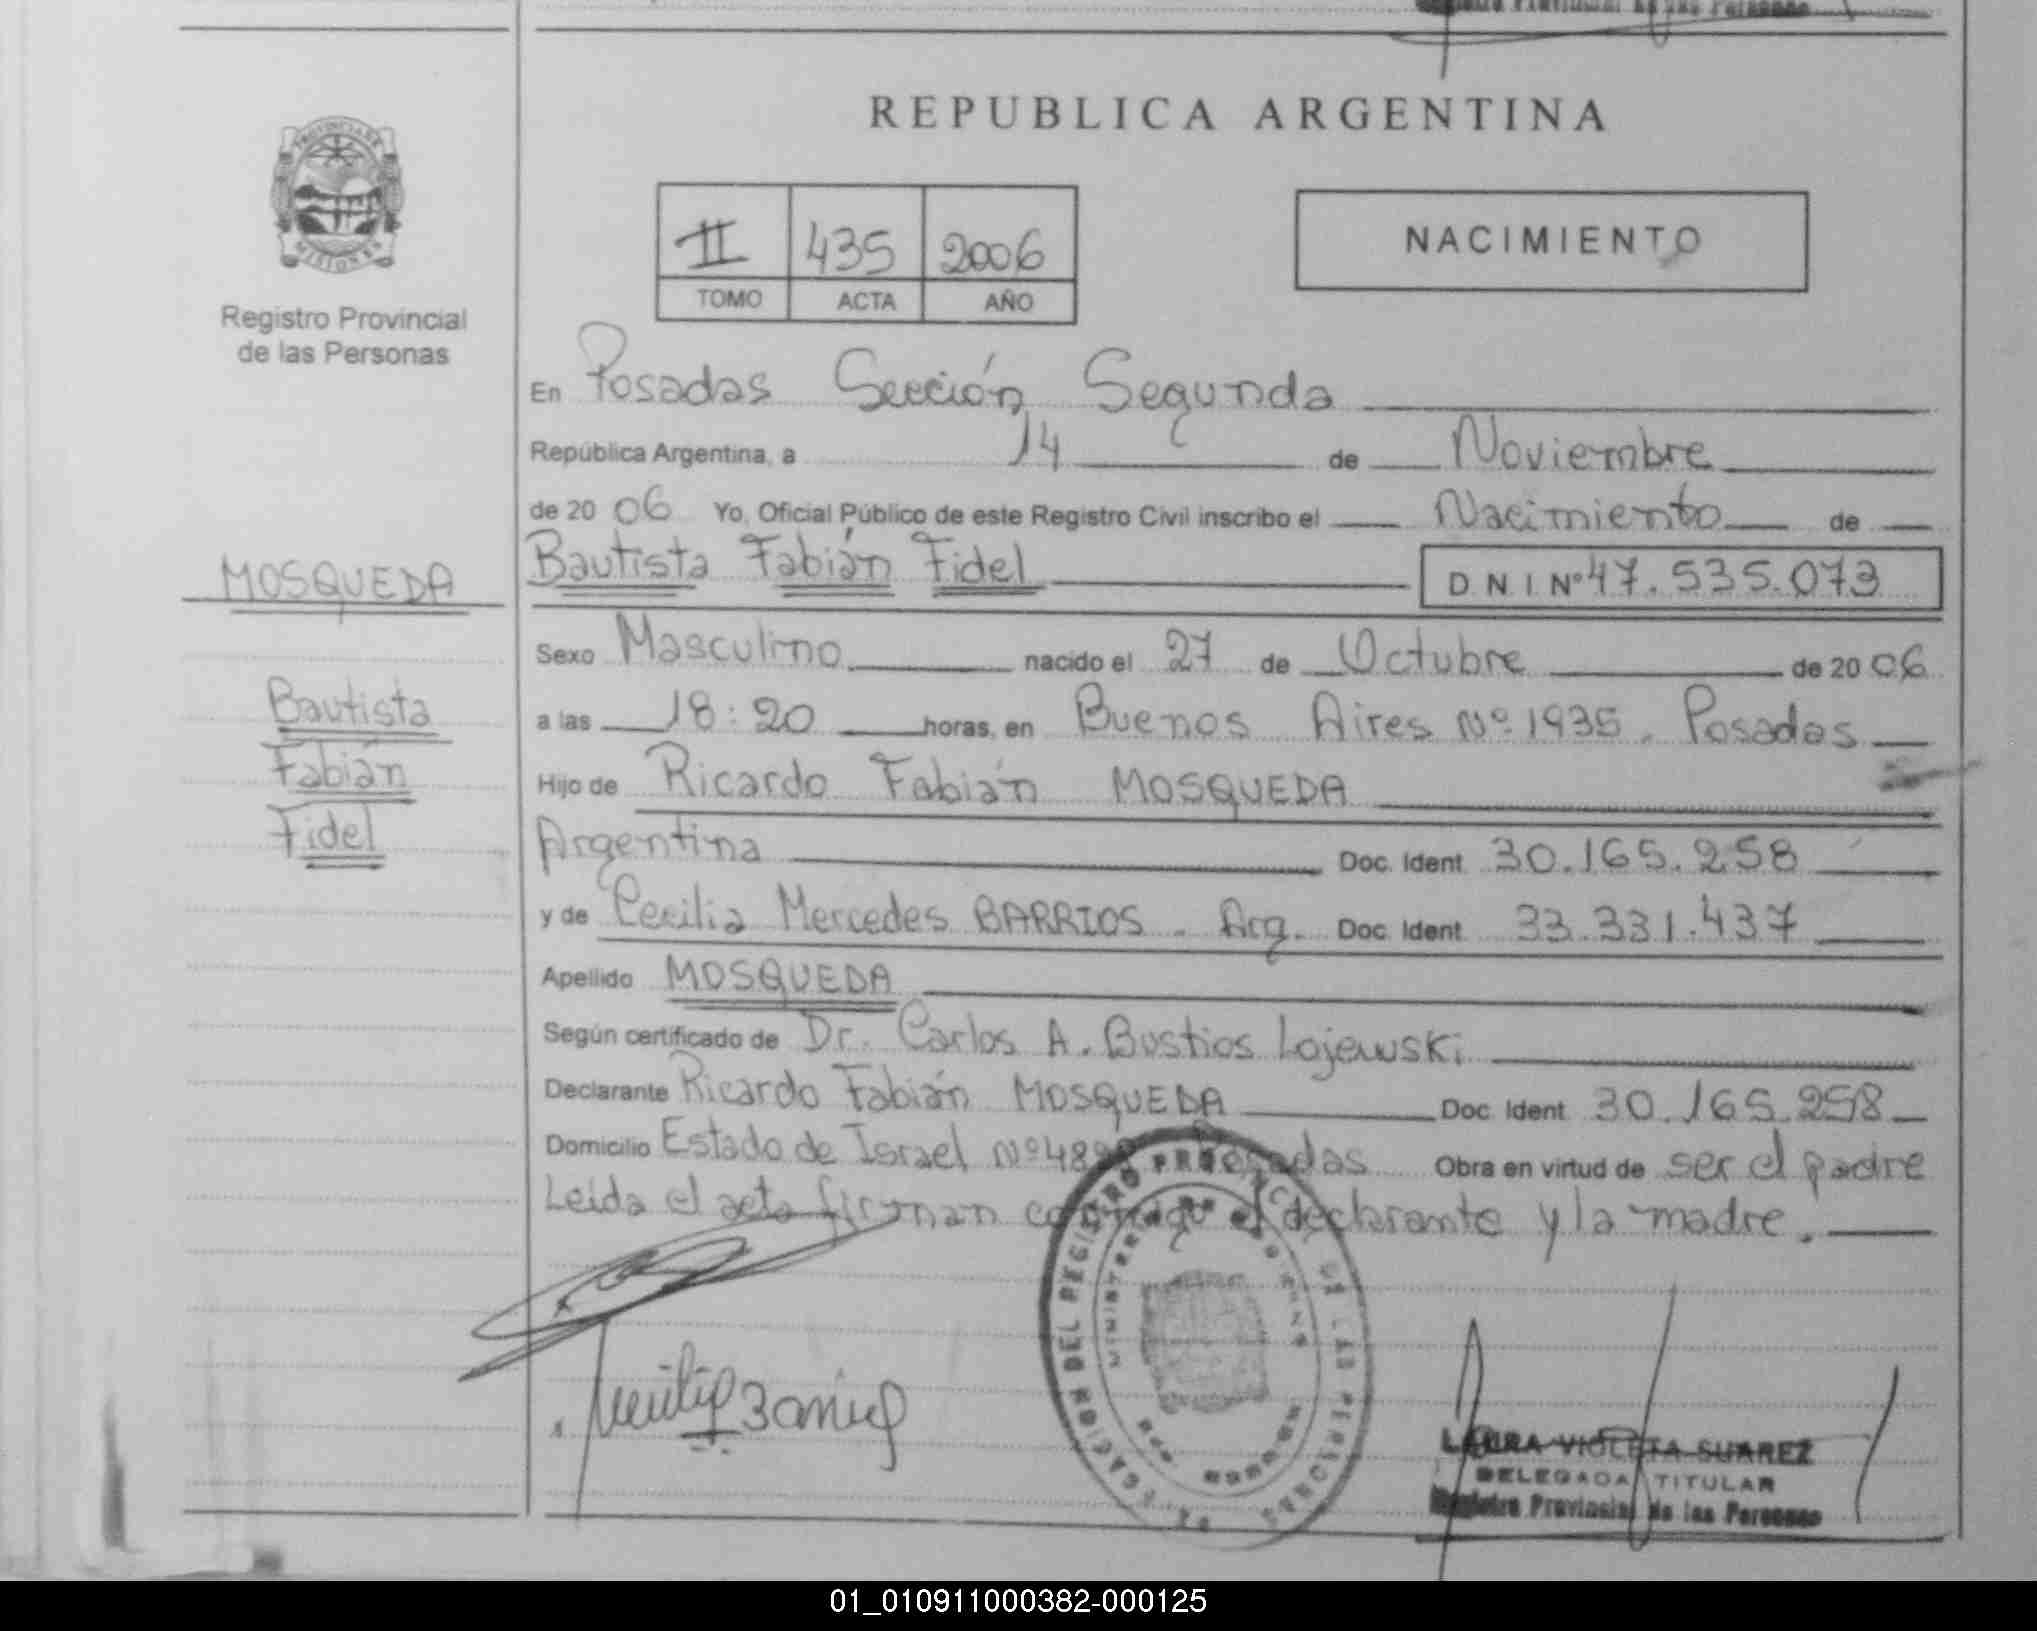 Registro Provincial de las Personas
REPUBLICA ARGENTINA
PROVINCIA DE
MISIONES
Registro Provincial
de las Personas
II 435 2006
TOMO ACTA AÑO
NACIMIENTO
En Posadas Sección Segunda
República Argentina, a 14 de Noviembre
de 20 06 Yo, Oficial Público de este Registro Civil inscribo el Nacimiento de
MOSQUEDA
Bautista Fabián Fidel D.N.I. Nº 47.535.073
Sexo Masculino nacido el 27 de Octubre de 20 06
Bautista
Fabián
Fidel
a las 18:20 horas, en Buenos Aires Nº 1935. Posadas
Hijo de Ricardo Fabián MOSQUEDA
Argentina Doc. Ident. 30.165.258
y de Cecilia Mercedes BARRIOS. Arg. Doc. Ident. 33.331.437
Apellido MOSQUEDA
Según certificado de Dr. Carlos A. Bustios Lojewski
Declarante Ricardo Fabián MOSQUEDA Doc. Ident. 30.165.258
Domicilio Estado de Israel Posadas Obra en virtud de ser el padre
Leída el acta firman conmigo el declarante y la madre.
DEL REGISTRO PROVINCIAL DE LAS PERSONAS
LAURA VIOLETA SUAREZ
DELEGADA TITULAR
Registro Provincial de las Personas
01_010911000382-000125